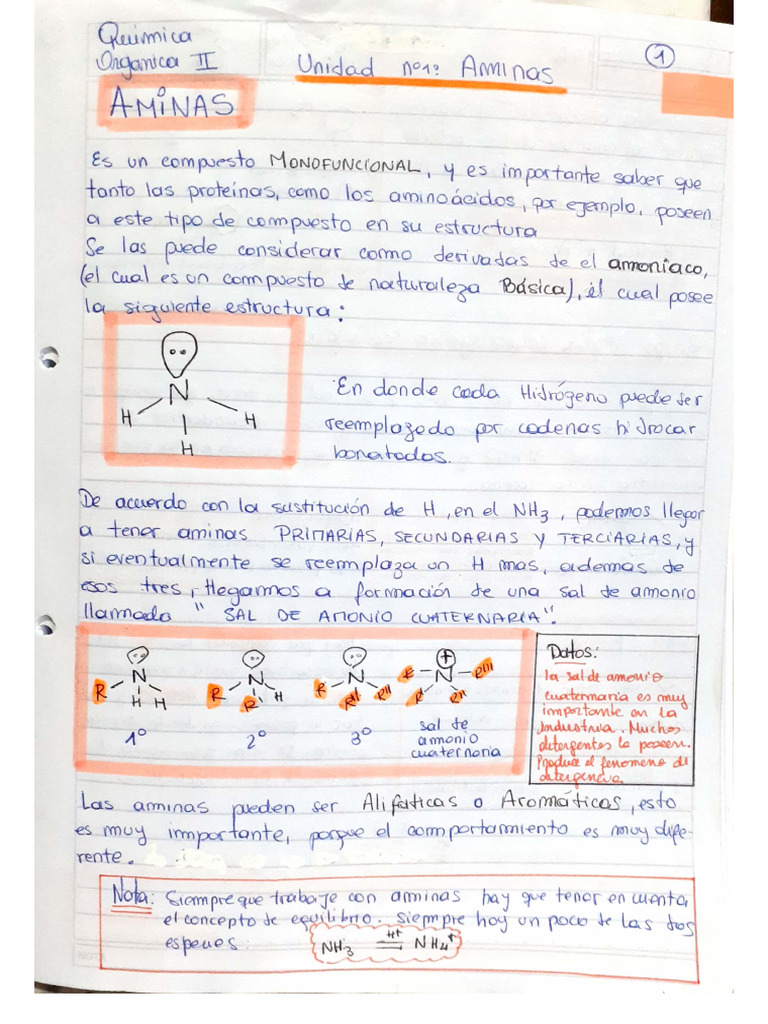 Química
Orgánica II
Unidad nº1: Aminas
1
AMINAS
Es un compuesto MONOFUNCIONAL, y es importante saber que
tanto las proteínas, como los aminoácidos, por ejemplo, poseen
a este tipo de compuesto en su estructura
Se las puede considerar como derivadas de el amoniaco,
(el cual es un compuesto de naturaleza Básica), el cual posee
la siguiente estructura:
N
H H
H
En donde cada Hidrógeno puede ser
reemplazado por cadenas hidrocar
bonatadas.
De acuerdo con la sustitución de H, en el NH3, podemos llegar
a tener aminas PRIMARIAS, SECUNDARIAS Y TERCIARIAS, y
si eventualmente se reemplaza un H mas, ademas de
esos tres, llegamos a formación de una sal de amonio
llamada "SAL DE AMONIO CUATERNARIA".
R N H H
R N R' H
R N R'' R''
R N + R''' R' R''
1º
2º
3º
sal de
amonio
cuaternaria
Datos:
la sal de amonio
cuaternaria es muy
importante en la
Industria. Muchos
detergentes la poseen.
Produce el fenomeno de
detergencia
Las aminas pueden ser Alifáticas o Aromáticas, esto
es muy importante, porque el comportamiento es muy dife-
rente.
Nota: Siempre que trabaje con aminas hay que tener en cuenta
el concepto de equilibrio. Siempre hay un poco de las dos
especies:
NH3 ⇌ H+ NH4+